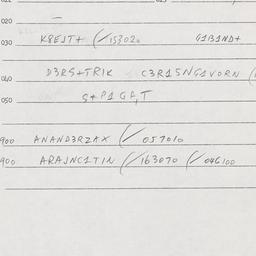 020 —
030 K8EJT+ (/153020 G1B1ND+
040 D3RS+TR1K C3R15NG1VORN (
050 S+P1GA,T
900 ANAND3RZAX (/ 057010
900 ARAJNC1T1N (/ 163070 (/ 046100